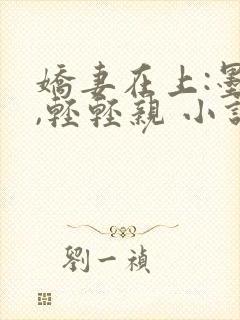 嬌妻在上:墨
,輕輕親 小說
劉一禎